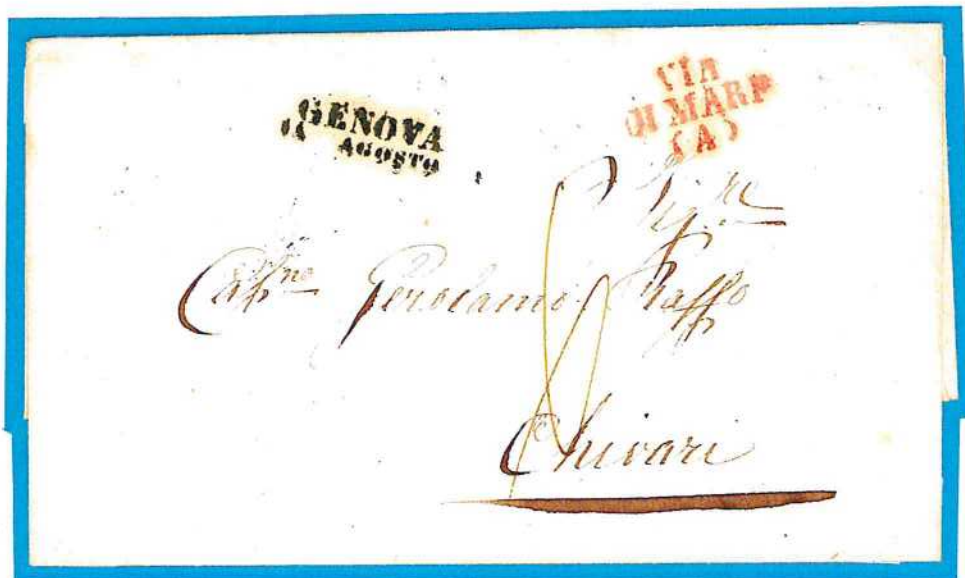 GENOVA
AGOSTO
VIA
DI MARE
(A)
Sig.re
Cap.no Gerolamo Raffo
Chivari